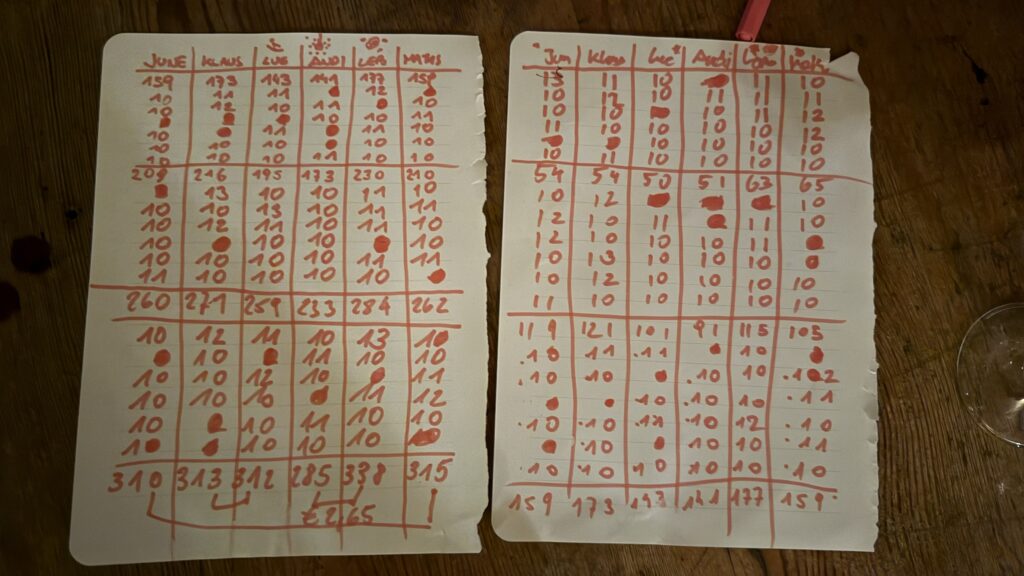 JUNE KLAUS LUE AUDI LEA MATHS
159 173 143 141 177 159
10 11 10 12
10 12 10 11 10 10
11 10 11
10 10 11 10 10
10 10 10 11 10 10
209 216 195 173 230 210
13 10 10 11 10
10 10 13 10 11 10
10 12 11 10 11 10
10 10 10 10
10 10 10 10 11 11
11 10 10 10 10
260 271 259 233 284 262
10 12 11 10 13 10
10 11 10 10
10 10 12 10 11
10 10 10 11 12
10 10 11 10 10
10 10 10 10 10
310 313 312 285 338 315
Jun Klaus Luc Audi
11 10 11 10
10 12 10 11 11 11
10 10 10 11 12
11 10 10 10 10 12
10 10 10 10
10 11 10 10 10 10
54 54 50 51 63 65
10 12 10
12 10 11 11 10
12 10 10 10 11
10 13 10 10 10
10 12 10 10 10 10
11 10 10 10 10 10
119 121 101 91 115 105
10 11 11 10
10 10 10 10
10 10 10 11
10 10 12 10
10 10 10 11
10 10 10 10 10 10
159 173 141 177 159